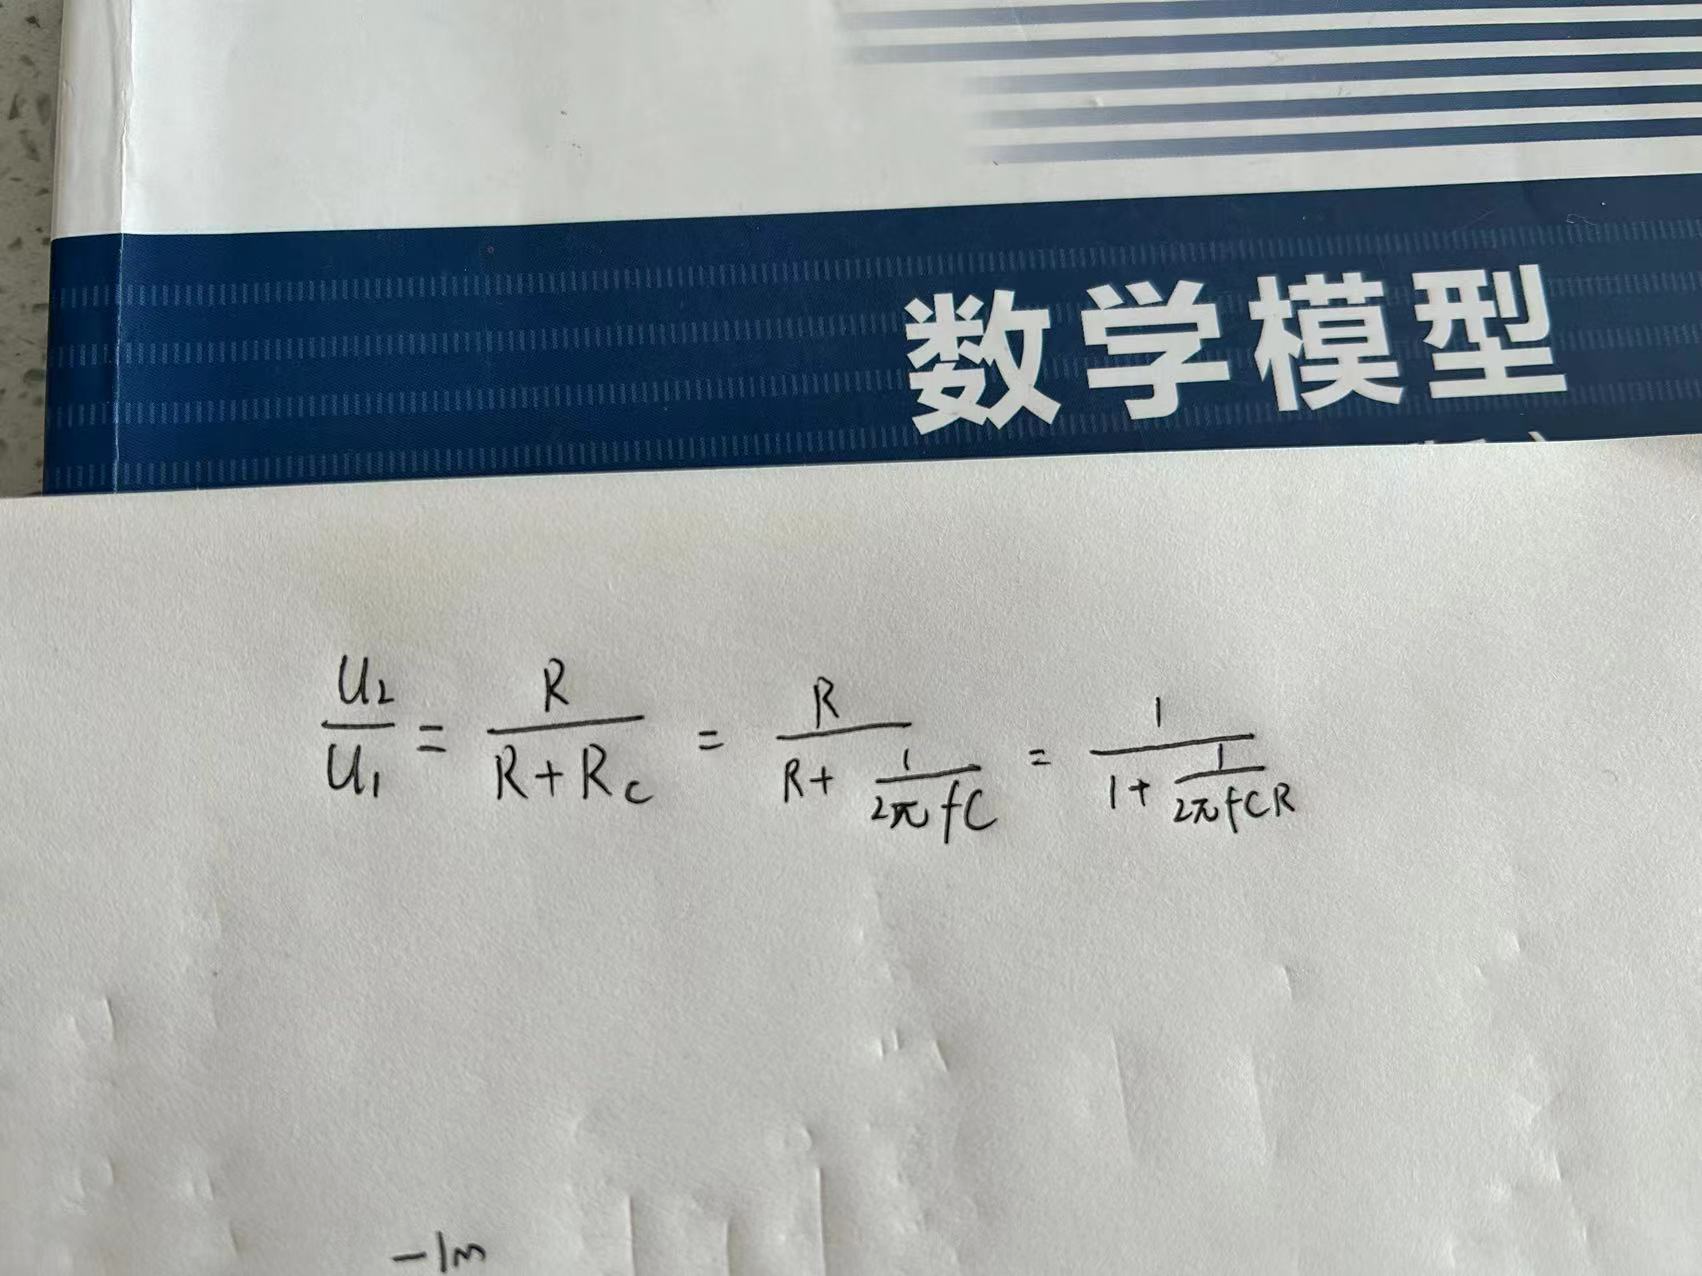 数学模型
U₂/U₁ = R/(R+R_C) = R/(R+1/(2πfC)) = 1/(1+1/(2πfCR))
-1m